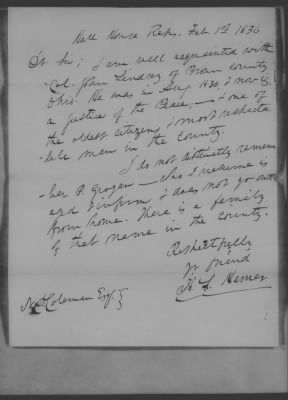 Hall House Reps. Feb 1st 1836
Dr Sir; I am well acquainted with
Col. John Lindsey of Brown county
Ohio. He was in Aug 1830, & now is,
a justice of the Peace, & one of
the oldest citizens, & most respecta
-ble men in the County.
I do not distinctly remem
-ber P. Grogan - who I presume is
aged & infirm & does not go out
from home. There is a family
of that name in the county.
Respectfully
yr friend
T. L. Hamer
Coleman Esqr.